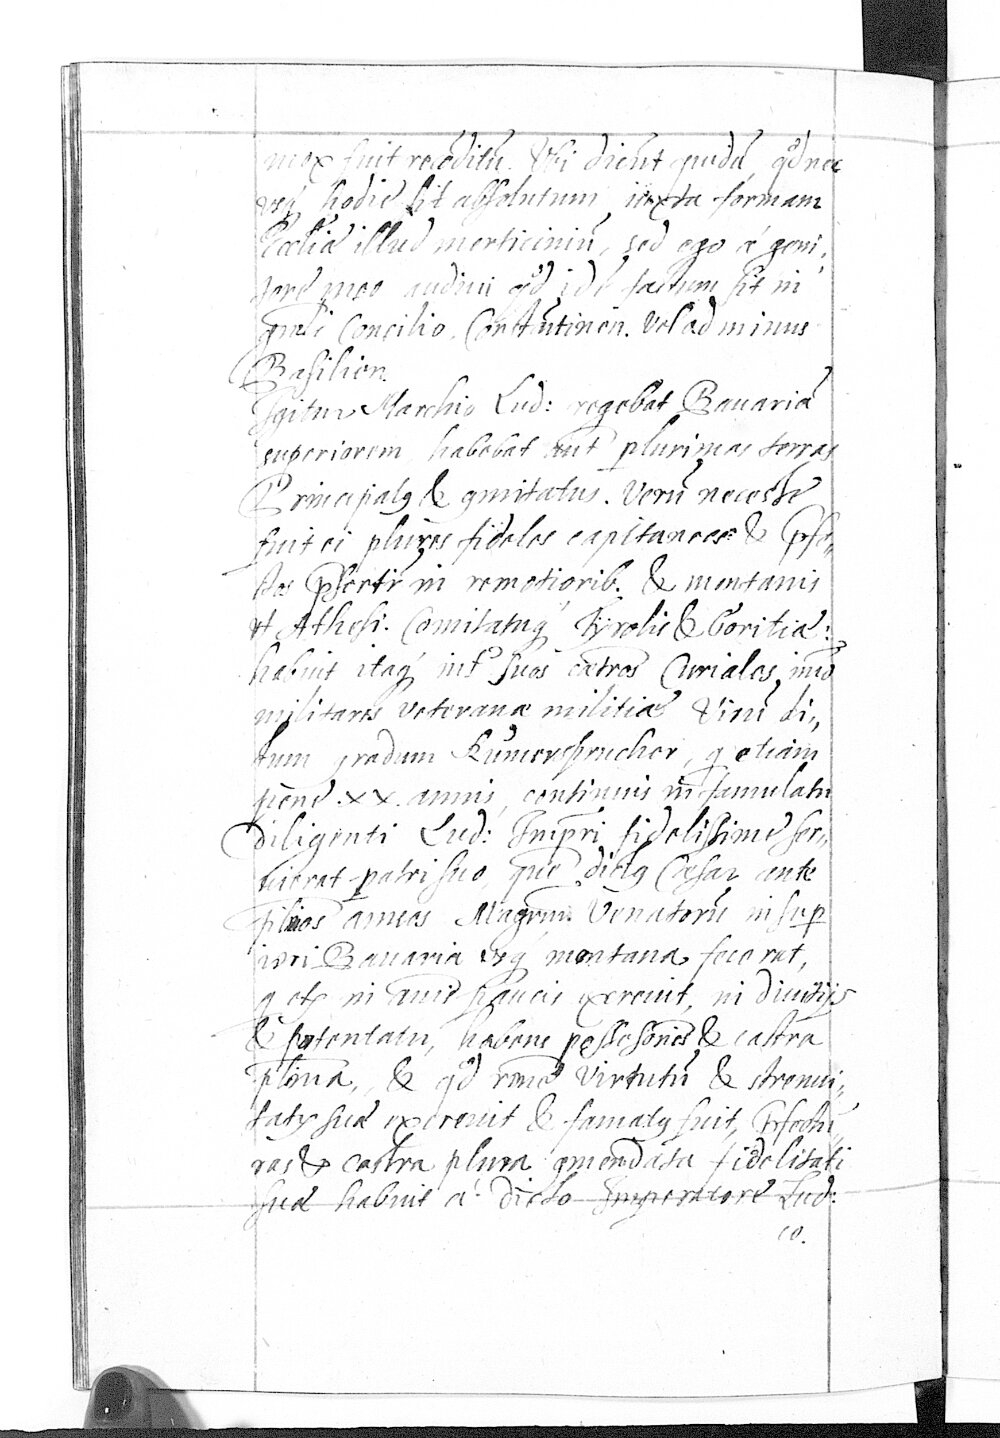 mox fuit recōditū. Ubi dicūt quidā, qđ nec
usq́ hodie sit absolutum, iuxta formam
Eccliæ illud morticiniū, sed ego á geni,,
tore meo audiui qđ idē factum sit in
gnāli Concilio. Constātinen. vel ad minus
Basilien.
Igitur Marchio Lud: regebat Bauariā
superiorem habebat aūt plurimas terras
Principatq & gmitatus. Verū necesse
fuit ei plures fideles capitaneos & Pfe,,
ctos Psertī in remotiorib. & montanis
ut Athesi. Comitatuq́ Tyrolis & Goritiæ:
habuit itaq́ int suos cæteros Curiales, imō
militares veteranæ militiæ Virū di,,
tum gradum Kūmersprucher, q etiam
pene .XX. annis, continuis in famulatu
diligenti Lud: Impri fidelissime ser,,
uierat patri suo, quē dictq Cæsar ante
filios annos Magrum Venatorū in sup
iori Bauaria usq́ montana fecerat,
q etc in annis paucis excreuit, in diuitijs
& potentatu, habens possessiones & castra
plima, & qđ rōne virtutū & strenui,,
tatis suæ excreuit & famatq fuit, Pfectu,,
ras & castra plura gmendata fidelitati
suæ habuit á dicto Imperatore Lud:
co.